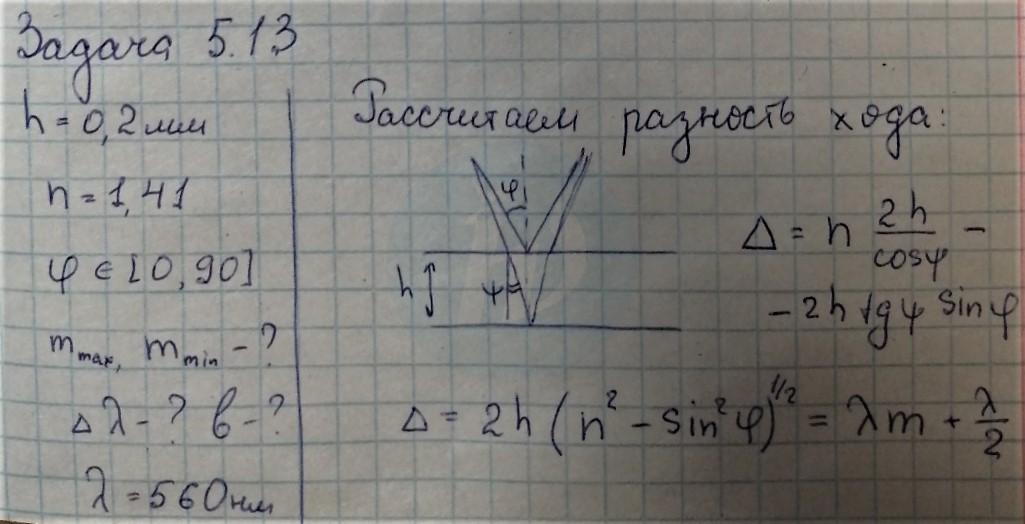 Задача 5.13
h = 0,2 мм
n = 1,41
φ ∈ [0, 90]
m max, m min - ?
Δλ - ? b - ?
λ = 560 нм
Рассчитаем разность хода:
φ
h
ψ
Δ = n 2h/cosψ -
- 2h tgψ sinφ
Δ = 2h (n² - sin²φ)^1/2 = λm + λ/2